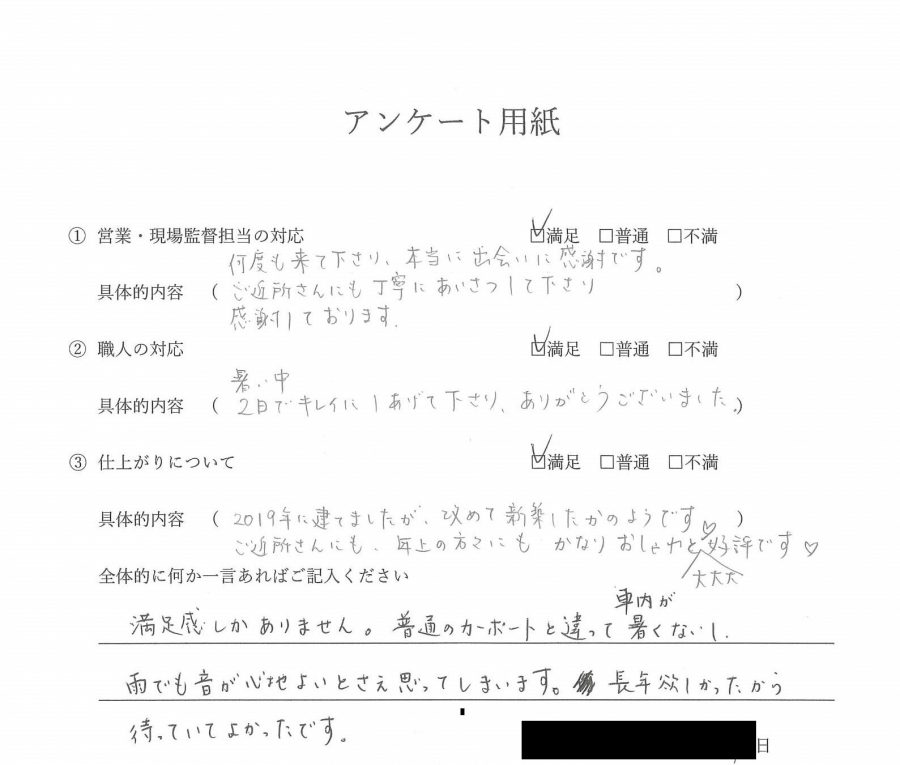 アンケート用紙
① 営業・現場監督担当の対応 ☑満足 □普通 □不満
何度も来て下さり、本当に出会いに感謝です。
具体的内容 ( ご近所さんにも丁寧にあいさつして下さり )
感謝しております.
② 職人の対応 ☑満足 □普通 □不満
暑い中
具体的内容 ( 2日でキレイにしあげて下さり、ありがとうございました.)
③ 仕上がりについて ☑満足 □普通 □不満
具体的内容 ( 2019年に建てましたが、改めて新築したかのようです♡ )
ご近所さんにも、年上の方々にも かなりおしゃれと大大大好評です♡
全体的に何か一言あればご記入ください
満足感しかありません。普通のカーポートと違って車内が暑くないし.
雨でも音が心地よいとさえ思ってしまいます。長年欲しかったから
待っていてよかったです。
日